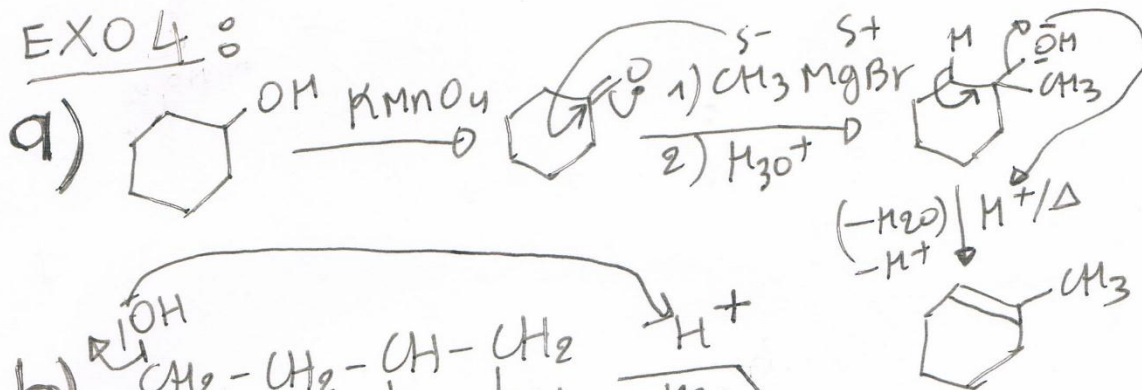 EXO4:
a) OH KMnO4 O 1) CH3MgBr δ- δ+ 2) H3O+ H OH CH3
(-H2O) -H+ H+/Δ
CH3
b) OH CH2-CH2-CH-CH2 H+